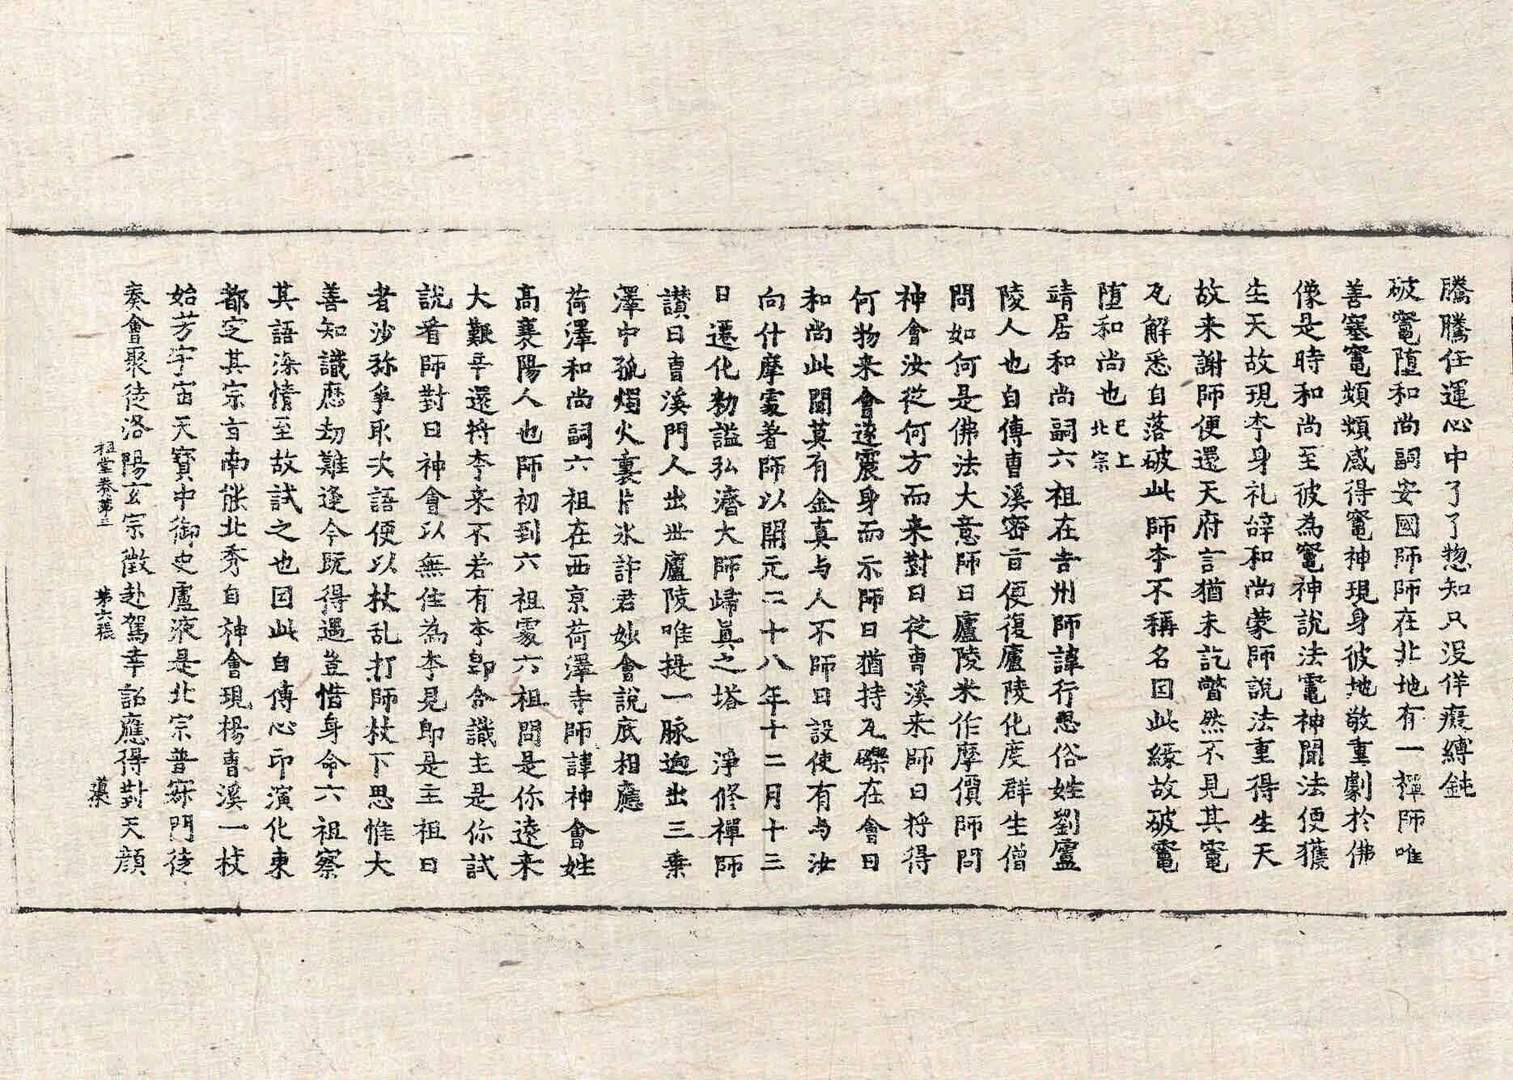 騰騰任運心中了了惣知只没佯癡縛鈍
破竃堕和尚嗣安國師師在北地有一禪師唯
善塞竃頻頻感得竃神現身彼地敬重劇於佛
像是時和尚至彼為竃神說法竃神聞法便獲
生天故現夲身礼辝和尚蒙師說法重得生天
故来謝師便還天府言猶未訖瞥然不見其竃
瓦解悉自落破此師夲不稱名因此緣故破竃
堕和尚也已上北宗
靖居和尚嗣六祖在吉州師諱行思俗姓劉廬
陵人也自傳曹溪密旨便復廬陵化度群生僧
問如何是佛法大意師曰廬陵米作摩價師問
神會汝從何方而来對曰從曹溪来師曰将得
何物来會遂震身而示師曰猶持瓦礫在會曰
和尚此間莫有金真与人不師曰設使有与汝
向什摩處著師以開元二十八年十二月十三
日遷化勑謚弘濟大師歸真之塔 淨修禪師
讃曰曹溪門人出世廬陵唯提一脉逈出三乗
澤中孤燭火裏片氷許君妙會說底相應
荷澤和尚嗣六祖在西京荷澤寺師諱神會姓
高襄陽人也師初到六祖處六祖問是你遠来
大艱辛還将夲来不若有夲即合識主是你試
說看師對曰神會以無住為夲見即是主祖曰
者沙弥爭取次語便以杖乱打師杖下思惟大
善知識歷劫難逢今既得遇豈惜身命六祖察
其語深情至故試之也因此自傳心印演化東
都定其宗旨南能北秀自神會現楊曹溪一枝
始芳宇宙天寶中御史盧液是北宗普寂門徒
奏會聚徒洛陽玄宗徵赴駕幸詔應得對天顔
祖堂卷第三 第六張 藁